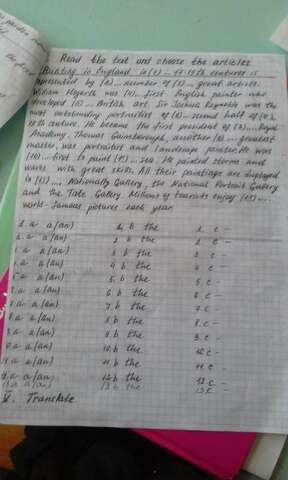 Read the text and choose the articles
Painting in England in (1)... 17-19th centures is
represented by (2)... number of (3)... great artists.
William Hogarth was (4)... first English painter who
developed (5)... British art. Sir Joshua Reynolds was the
most outstanding portraitist of (6)... second half of (7)
th centure. He became the first president of (8)... Royal
Academy. Thomas Gainsborough, another (9)... greatest
master, was portraitist and landscape painter. He was
(10)... first to paint (11)... sea. He painted storms and
waves with great skills. All their paintings are displayed
in (12)... Nationally Gallery, the National Portrait Gallery
and the Tate Gallery. Millions of tourists enjoy (13)...
world-famous pictures each year.
1. a a/an) 1. b the 1. c -
2. a a/an) 2 b the 2. c -
a a/an) 3 b the 3 c -
a a/an) 4 b the 4 c -
a a/an) 5. b the 5. c -
a a/an) 6 b the 6 c -
a a/an) 7. b the 7. c -
a a/an) 8. b the 8. c -
a a/an) 9. b the 9. c -
a a/an) 10. b the 10. c -
a a/an) 11. b the 11. c -
a a/an) 12. b the 12. c -
13. a a/an) 13 b the 13 c -
V. Translate